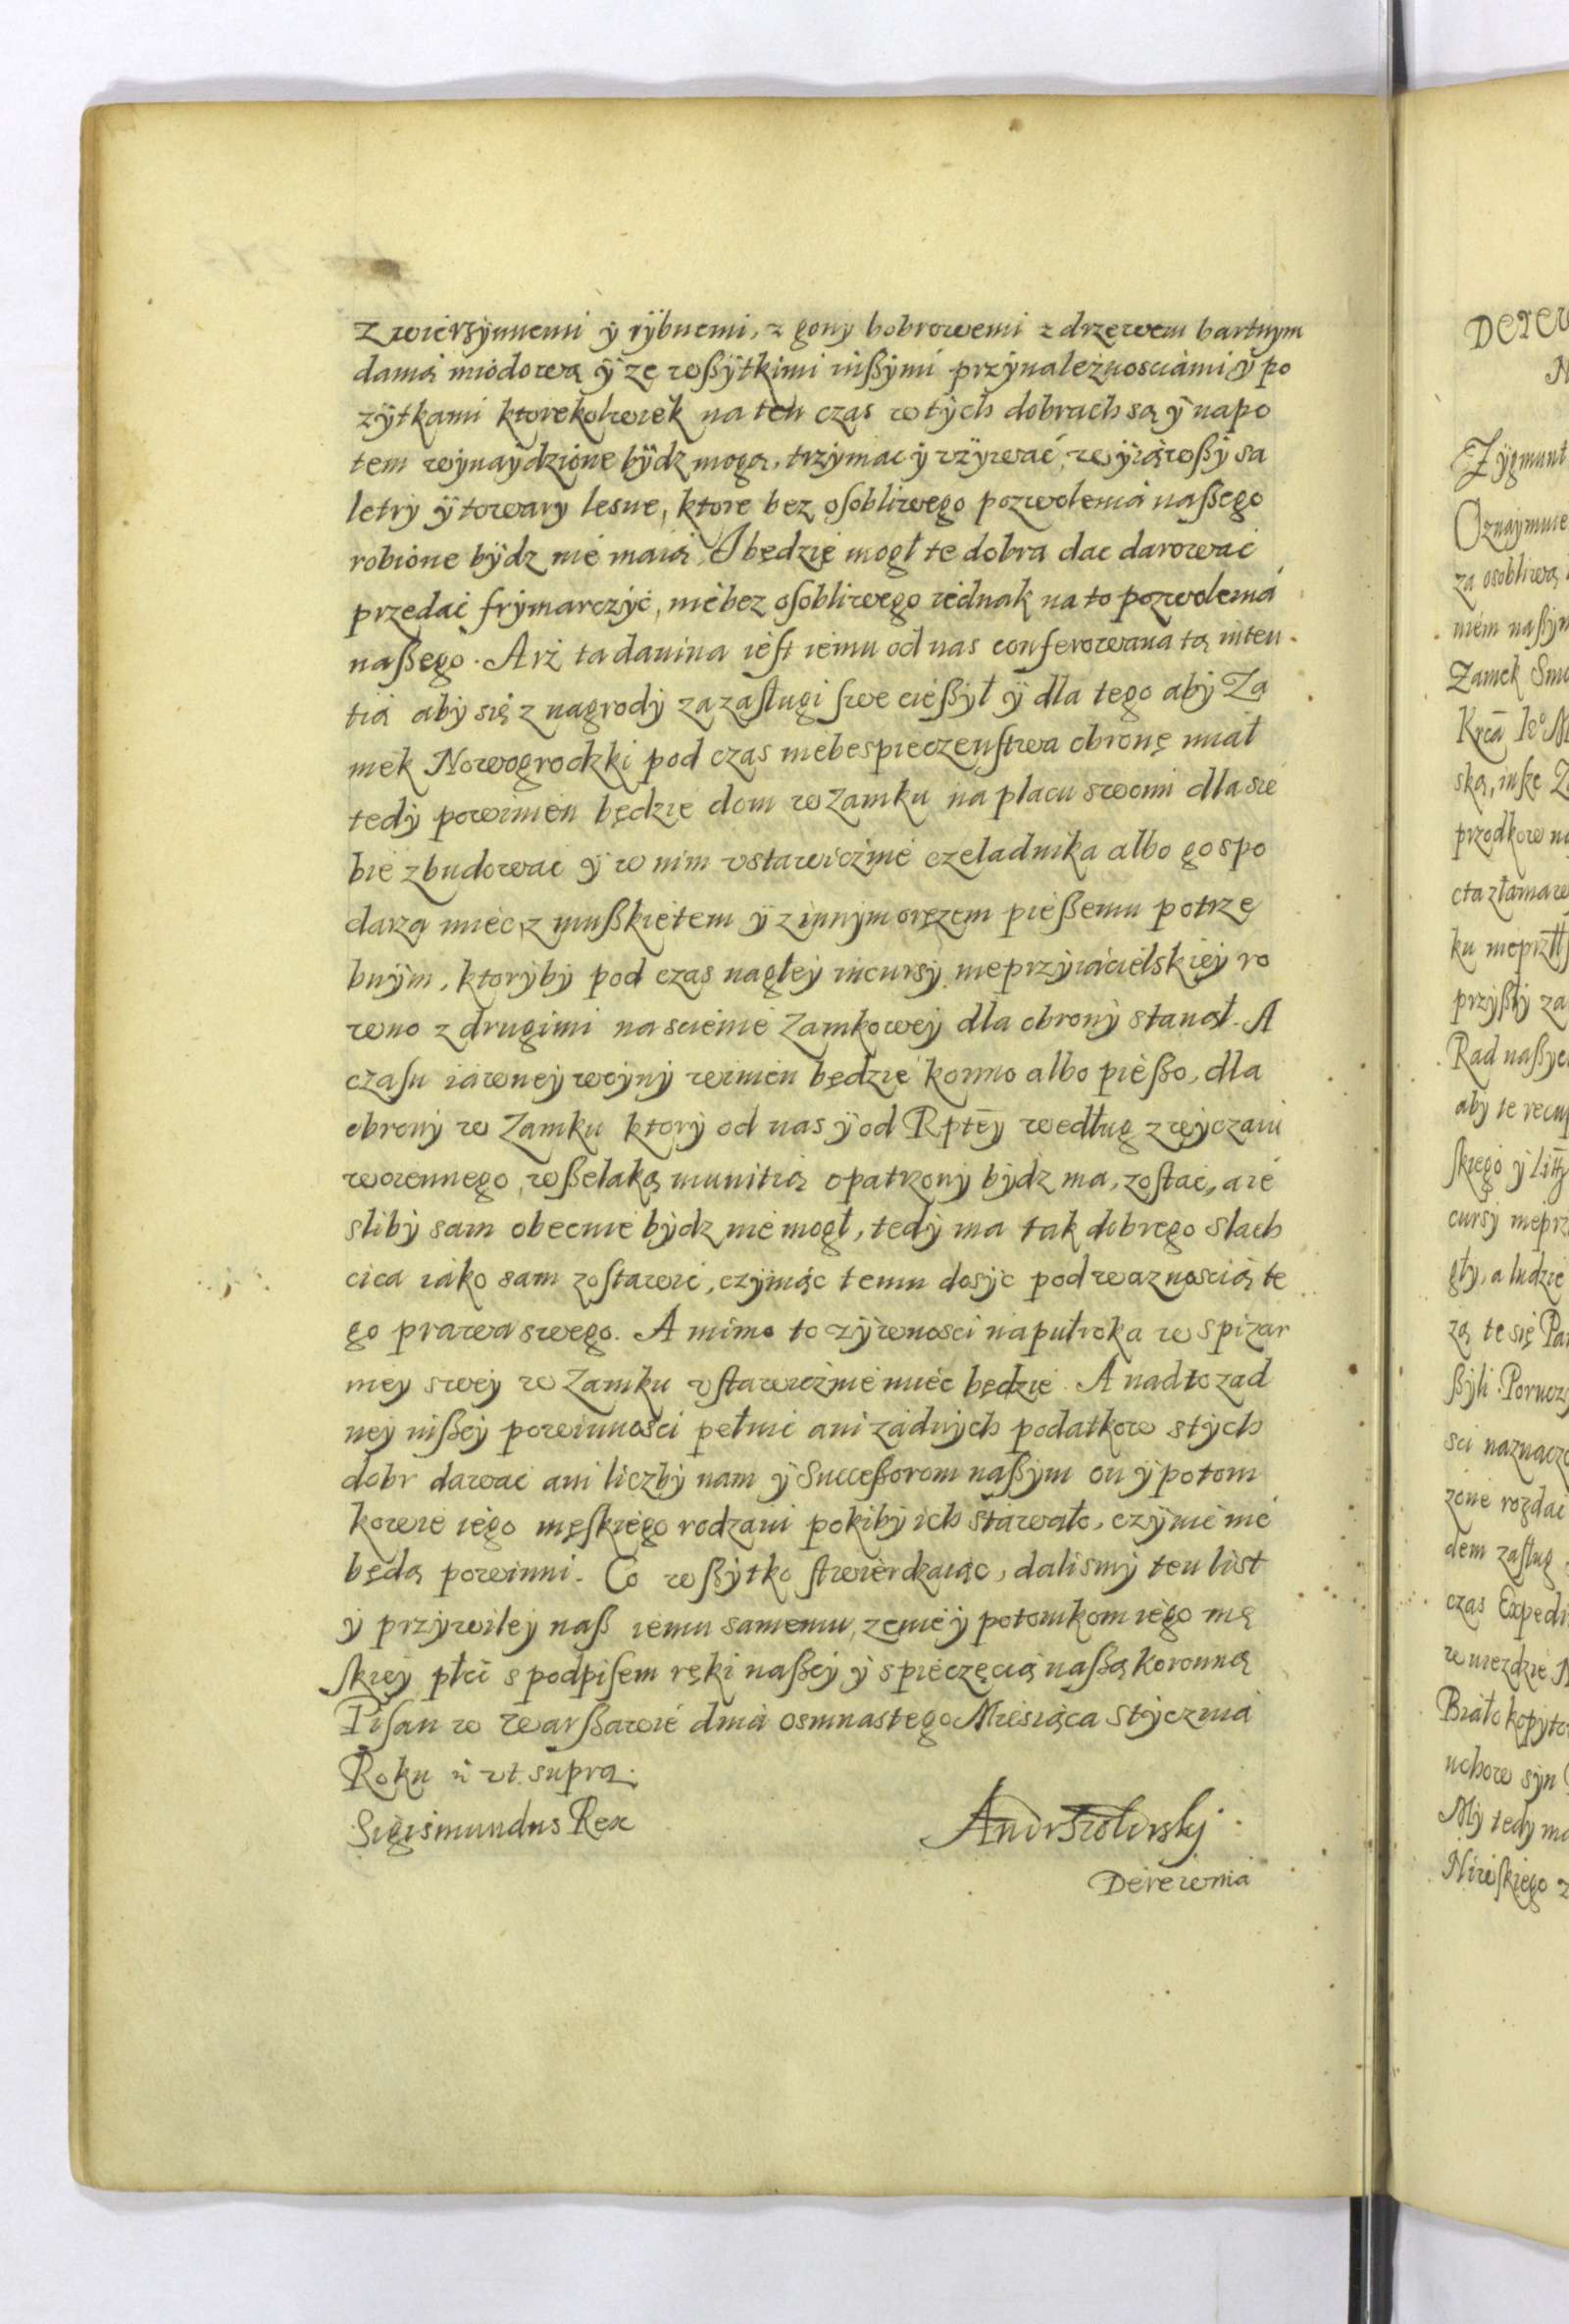 zwierzÿnnemi ÿ rÿbnemi, z gony bobrowemi z drzewem bartnym
danią miodową ÿ ze wßÿtkimi inßymi prżynależnosciami ÿ po
zÿtkami ktorekolwiek na ten czas w tÿch dobrach są ÿ napo
tem wÿnaÿdzione bÿdz mogą, trzÿmac ÿ vżÿwać, wÿiąwßÿ sa
letrÿ ÿ towary lesne, ktore bez osobliwego pozwolenia naßego
robione bÿdz nie maią. J będzie mogł te dobra dac darowac
przedać frÿmarczÿć, nie bez osobliwego iednak na to pozwolenia
naßego. A iż ta danina iest iemu od nas conferowana tą inten
tią abÿ się z nagrodÿ za zasługi swe cießÿł ÿ dla tego abÿ Za
mek Nowogrodzki pod czas niebespieczenstwa obronę miał
tedÿ powinien będzie dom w Zamku na placu swoim dla sie
bie zbudowac ÿ w nim vstawicżnie czeladnika albo gospo
darza miec, z mußkietem ÿ z innÿm oręzem pießemu potrze
bnÿm, ktorÿbÿ pod czas nagłeÿ incursÿ nieprzÿiacielskieÿ ro
wno z drugimi na scienie Zamkoweÿ dla obronÿ stanął. A
czasu iawneÿ woÿnÿ winien będzie konno albo pießo, dla
obronÿ w Zamku ktorÿ od nas ÿ od Rptēÿ według zwÿczaiu
woiennego, wßelaką munitią opatrzonÿ bÿdz ma, zostac, a ie
slibÿ sam obecnie bÿdz nie mogł, tedÿ ma tak dobrego slach
cica iako sam zostawic, czÿniąc temu dosÿc pod waznoscią te
go prawa swego. A mimo to zÿwnosci na pułroka w spizar
nieÿ sweÿ w Zamku vstawicżnie miec będzie. A nad to zad
neÿ inßeÿ powinnosci pełnic ani żadnÿch podatkow s tÿch
dobr dawac ani liczbÿ nam ÿ Succeßorom naßÿm on ÿ potom
kowie iego męskiego rodzaiu pokibÿ ich stawało, czÿnic nie
będą powinni. Co wßÿtko stwierdzaiąc, dalismÿ ten list
ÿ przÿwileÿ naß iemu samemu, zenie ÿ potomkom iego mę
skieÿ płci s podpisem ręki naßeÿ ÿ s pieczęcią naßą koronną
Pisan w Warßawie dnia osmnastego Miesiąca Stÿcznia
Roku ut supra.
Sigismundus Rex
Derewnia
DereW
N
Zÿgmunt
Oznaÿmuie
za osobliwą
niem naßÿm
Zamek Smo
ską, inße Z
przodkow na
ku
przÿßłÿ za
Rad naßÿc
abÿ te recu
skiego ÿ
cursÿ niepr
głÿ, a ludzie
zą te się Pa
ßÿli. Porucz
sci naznacz
zone rozdai
dem zasług
czas Expedi
w uiezdzie N
Białokopÿto
uchow sÿn
Mÿ tedÿ ma
Niwskiego z